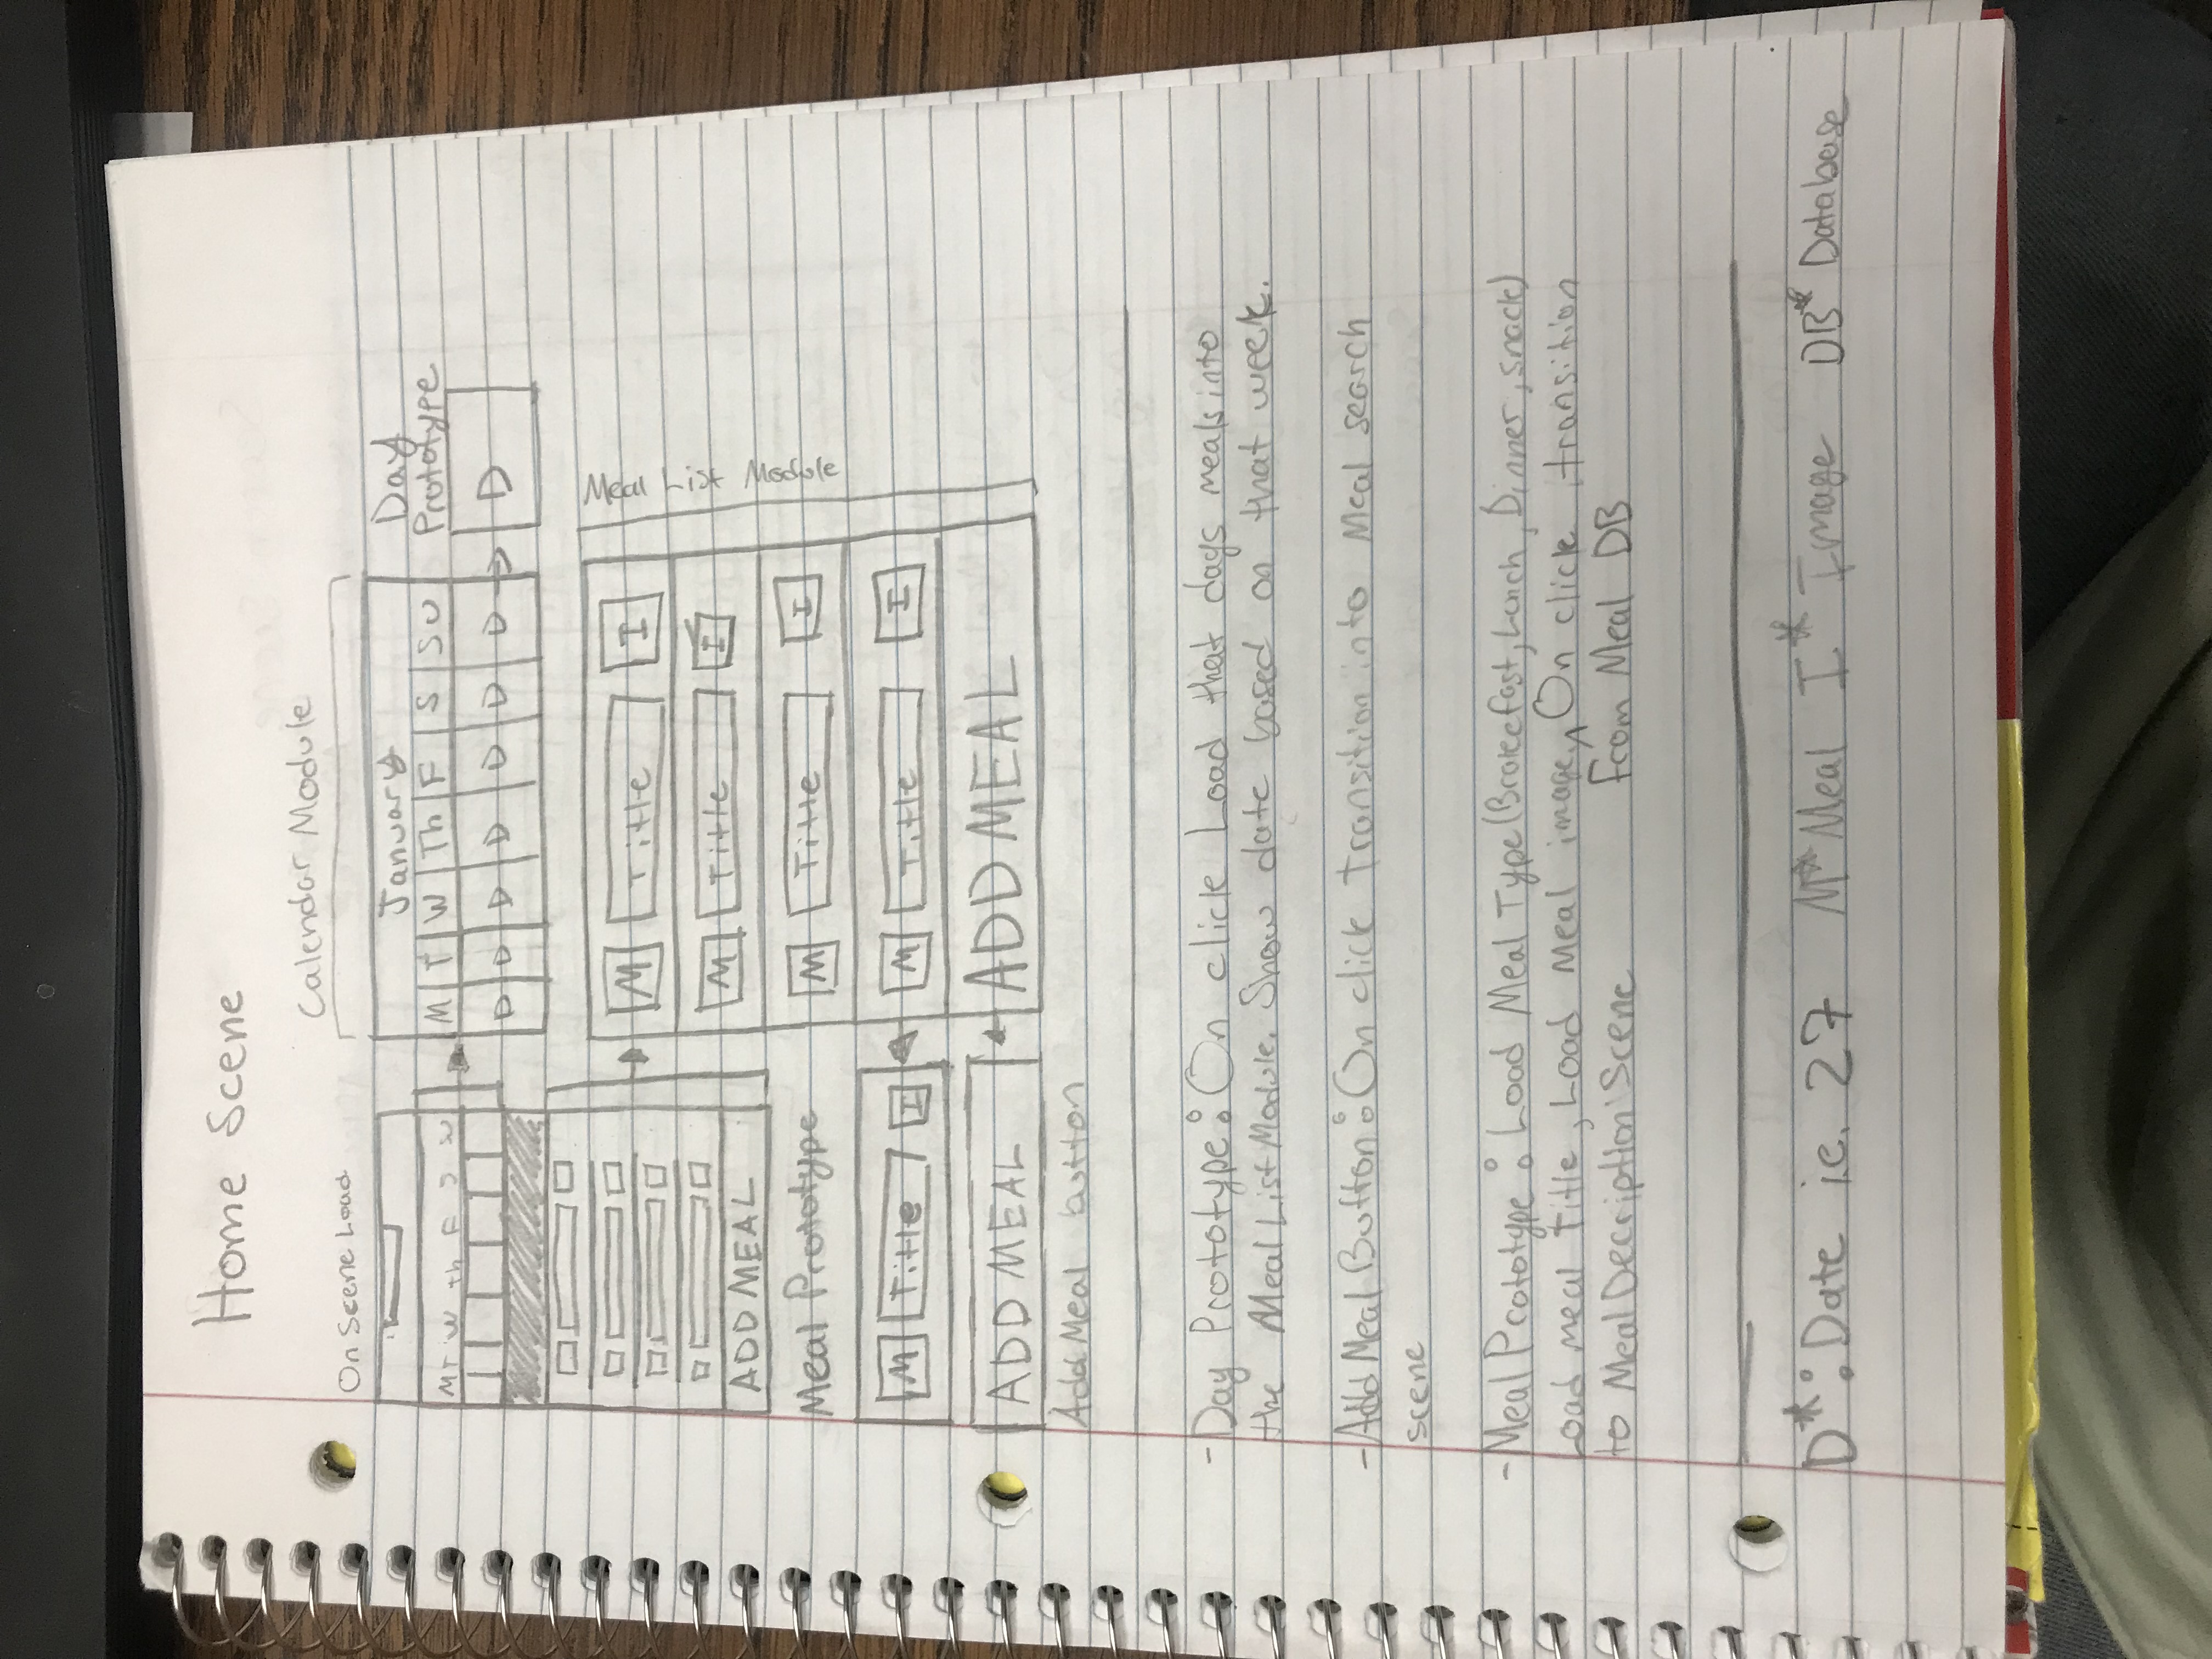 Home Scene
Calendar Module
On Scene Load
January
Day
Prototype
M T W Th F S SU
M T W Th F S SU
D D D D D D D
D
M Title I
M Title I
M Title I
M Title I
ADD MEAL
Meal List Module
ADD MEAL
Meal Prototype
M Title I
ADD MEAL
Add Meal button
- Day Prototype: On click Load that days meals into
the Meal List Module. Show date based on that week.
- Add Meal Button: On click transition into Meal search
scene
- Meal Prototype: Load Meal Type (Brakefast, Lunch, Dinner, snack)
Load meal Title, Load Meal image, ^ On click, transition
to Meal Decription Scene from Meal DB
D*: Date i.e. 27 M* Meal I* Image DB* Database